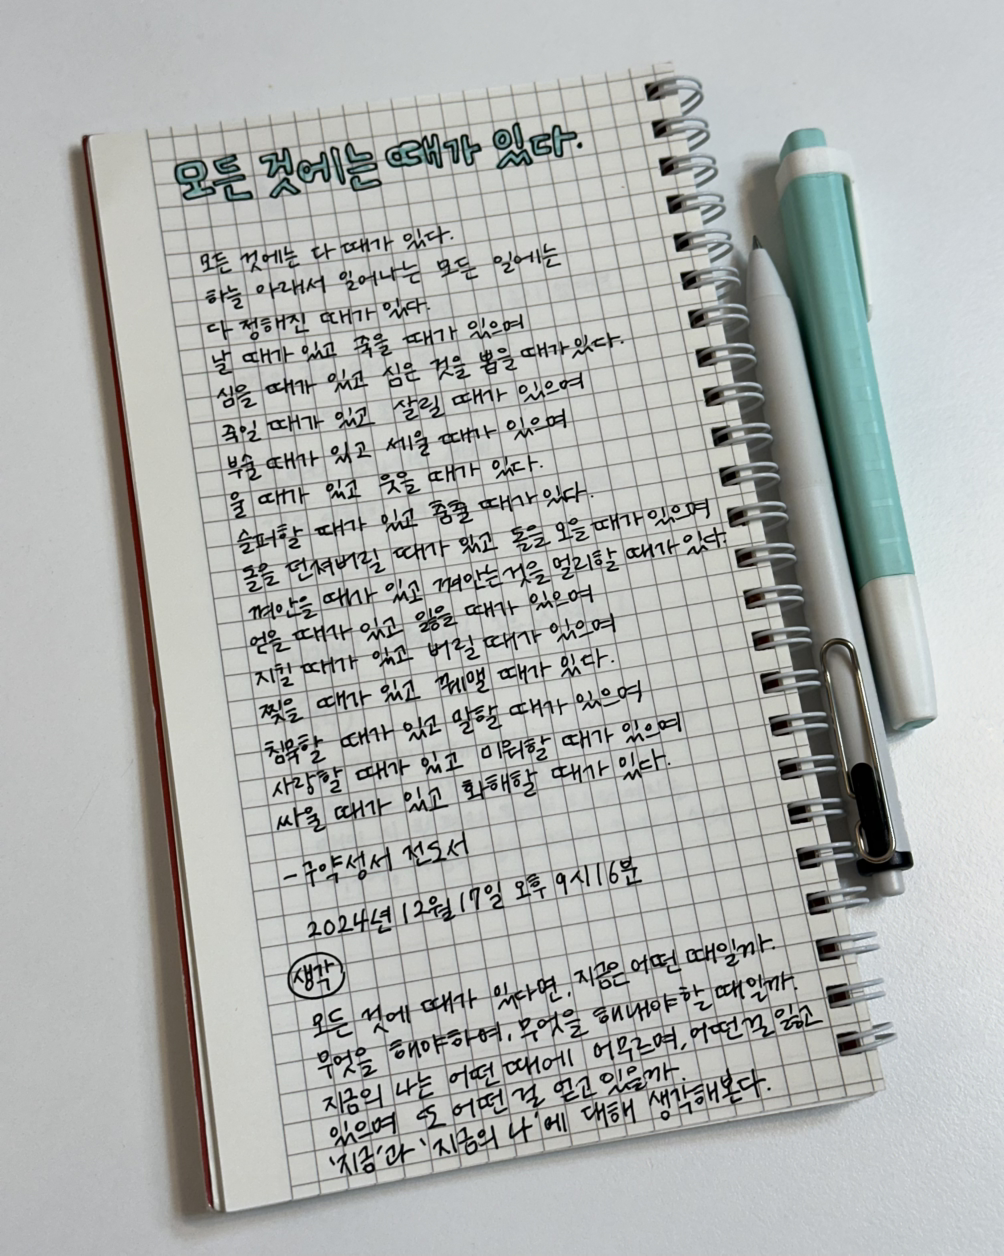 모든 것에는 때가 있다.
모든 것에는 다 때가 있다.
하늘 아래서 일어나는 모든 일에는
다 정해진 때가 있다.
날 때가 있고 죽을 때가 있으며
심을 때가 있고 심은 것을 뽑을 때가 있다.
죽일 때가 있고 살릴 때가 있으며
부술 때가 있고 세울 때가 있으며
울 때가 있고 웃을 때가 있다.
슬퍼할 때가 있고 춤출 때가 있다.
돌을 던져버릴 때가 있고 돌을 모을 때가 있으며
껴안을 때가 있고 껴안는 것을 멀리할 때가 있다.
얻을 때가 있고 잃을 때가 있으며
지킬 때가 있고 버릴 때가 있으며
찢을 때가 있고 꿰맬 때가 있다.
침묵할 때가 있고 말할 때가 있으며
사랑할 때가 있고 미워할 때가 있으며
싸울 때가 있고 화해할 때가 있다.
-구약성서 전도서
2024년 12월 17일 오후 9시 16분
생각
모든 것에 때가 있다면, 지금은 어떤 때일까.
무엇을 해야하며, 무엇을 해내야 할 때일까.
지금의 나는 어떤 때에 머무르며, 어떤 걸 잃고
있으며 또 어떤 걸 얻고 있을까.
'지금'과 '지금의 나'에 대해 생각해본다.